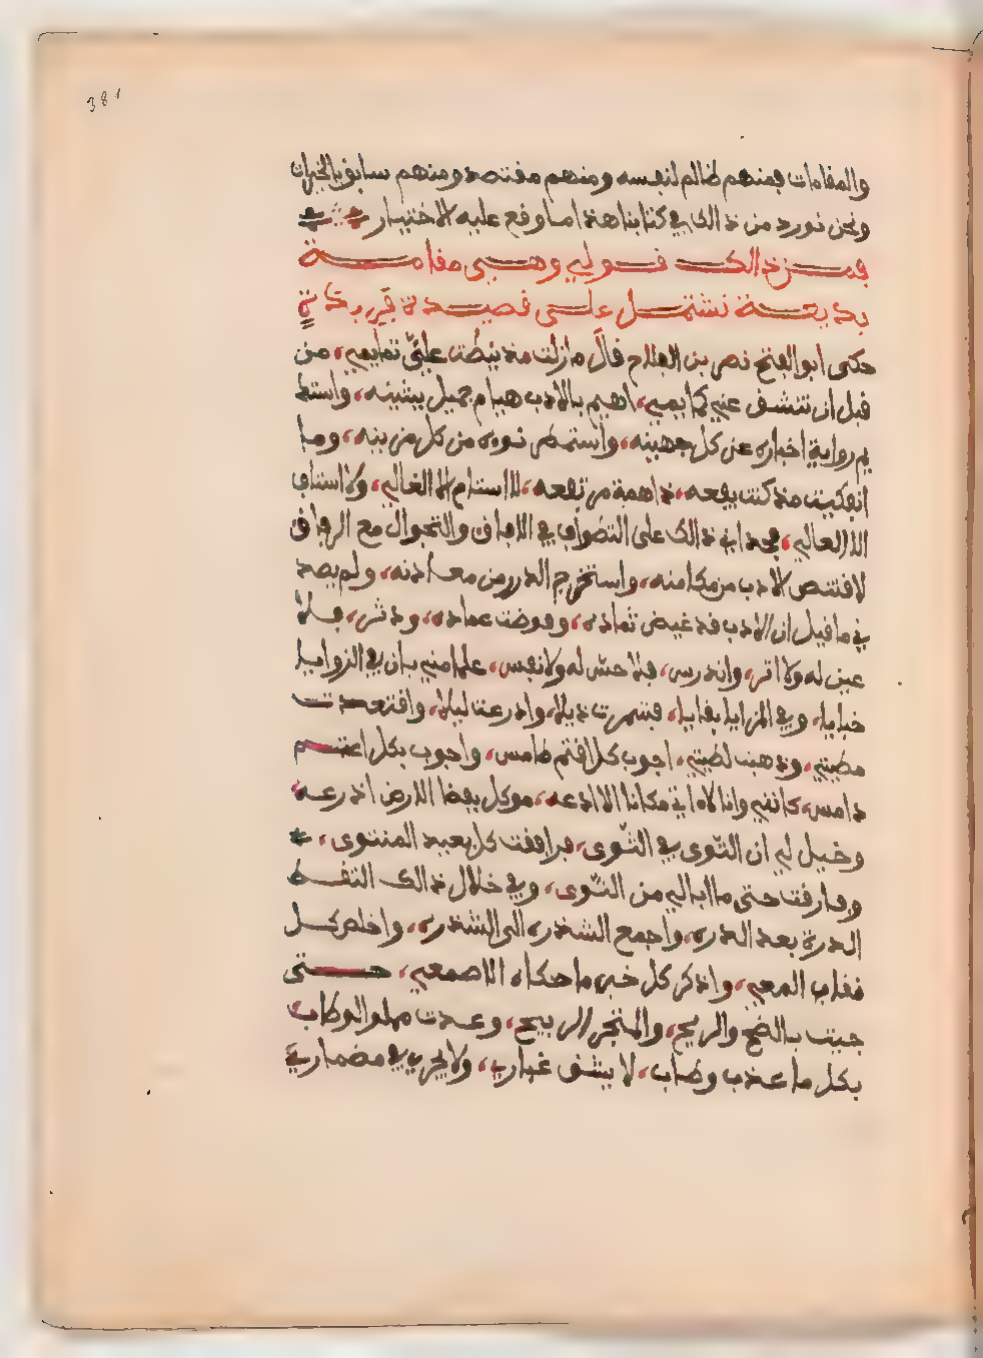 381
والمقامات فمنهم ظالم لنفسه ومنهم مقتصد ومنهم سابق بالخيرات
ونحن نورد من ذالك في كتابنا هذا ما وقع عليه الاختيار
فمن ذالك قولي وهي مقامة
بديعة تشتمل على قصيدة فريدة
حكى ابو الفتح نصر بن الفلاح قال ما زلت مذ نيطت علي تمايمي، من
قبل ان تنشف عني كمايمي، اهيم بالادب هيام جميل ببثينه، واستد
يم رواية اخباره عن كل جهينه، واستمطر نوءه من كل مزينه، وما
انفكيت مذ كنت يفعه، ذا همة مرتفعه، لا استام الا الغالي، ولا استاف
الا العالي، فحداني ذالك على التطواف في الافاق والتجوال مع الرفاق
لاقتنص الادب من مكامنه، واستخرج الدرر من معادنه، ولم يصد
ني ما قيل ان الادب قد غيض ثماده، وقوضت عماده، ودثر، فلا
عين له ولا اثر، واندرس، فلا حس له ولا نفس، علما مني بان في الزوايا
خبايا، وفي المزايا بقايا، فشمرت ذيلا، وادرعت ليلا، واقتعدت
مطيتي، وذهبت لطيتي، اجوب كل اقتم طامس، واجوب بكل اعتم
دامس، كانني وانا لاه اني مكانا الا ادعه، موكل بفضا الارض اذرعه،
وخيل لي ان التوى في الثوى، فرافقت كل بعيد المنتوى،
وفارقت حتى ما ابالي من النوى، وفي خلال ذالك التقط
الدرة بعد الدره، واجمع الشذره الى الشذره، واخلص كل
نقاب المعي، واذكر كل خبر ما حكاه الاصمعي، حتى
جيت بالضح والريح، والمتجر الربيح، وعدت مملو الوطاب
بكل ما عذب وطاب، لا يشف غباري، ولا يجرى في مضماري